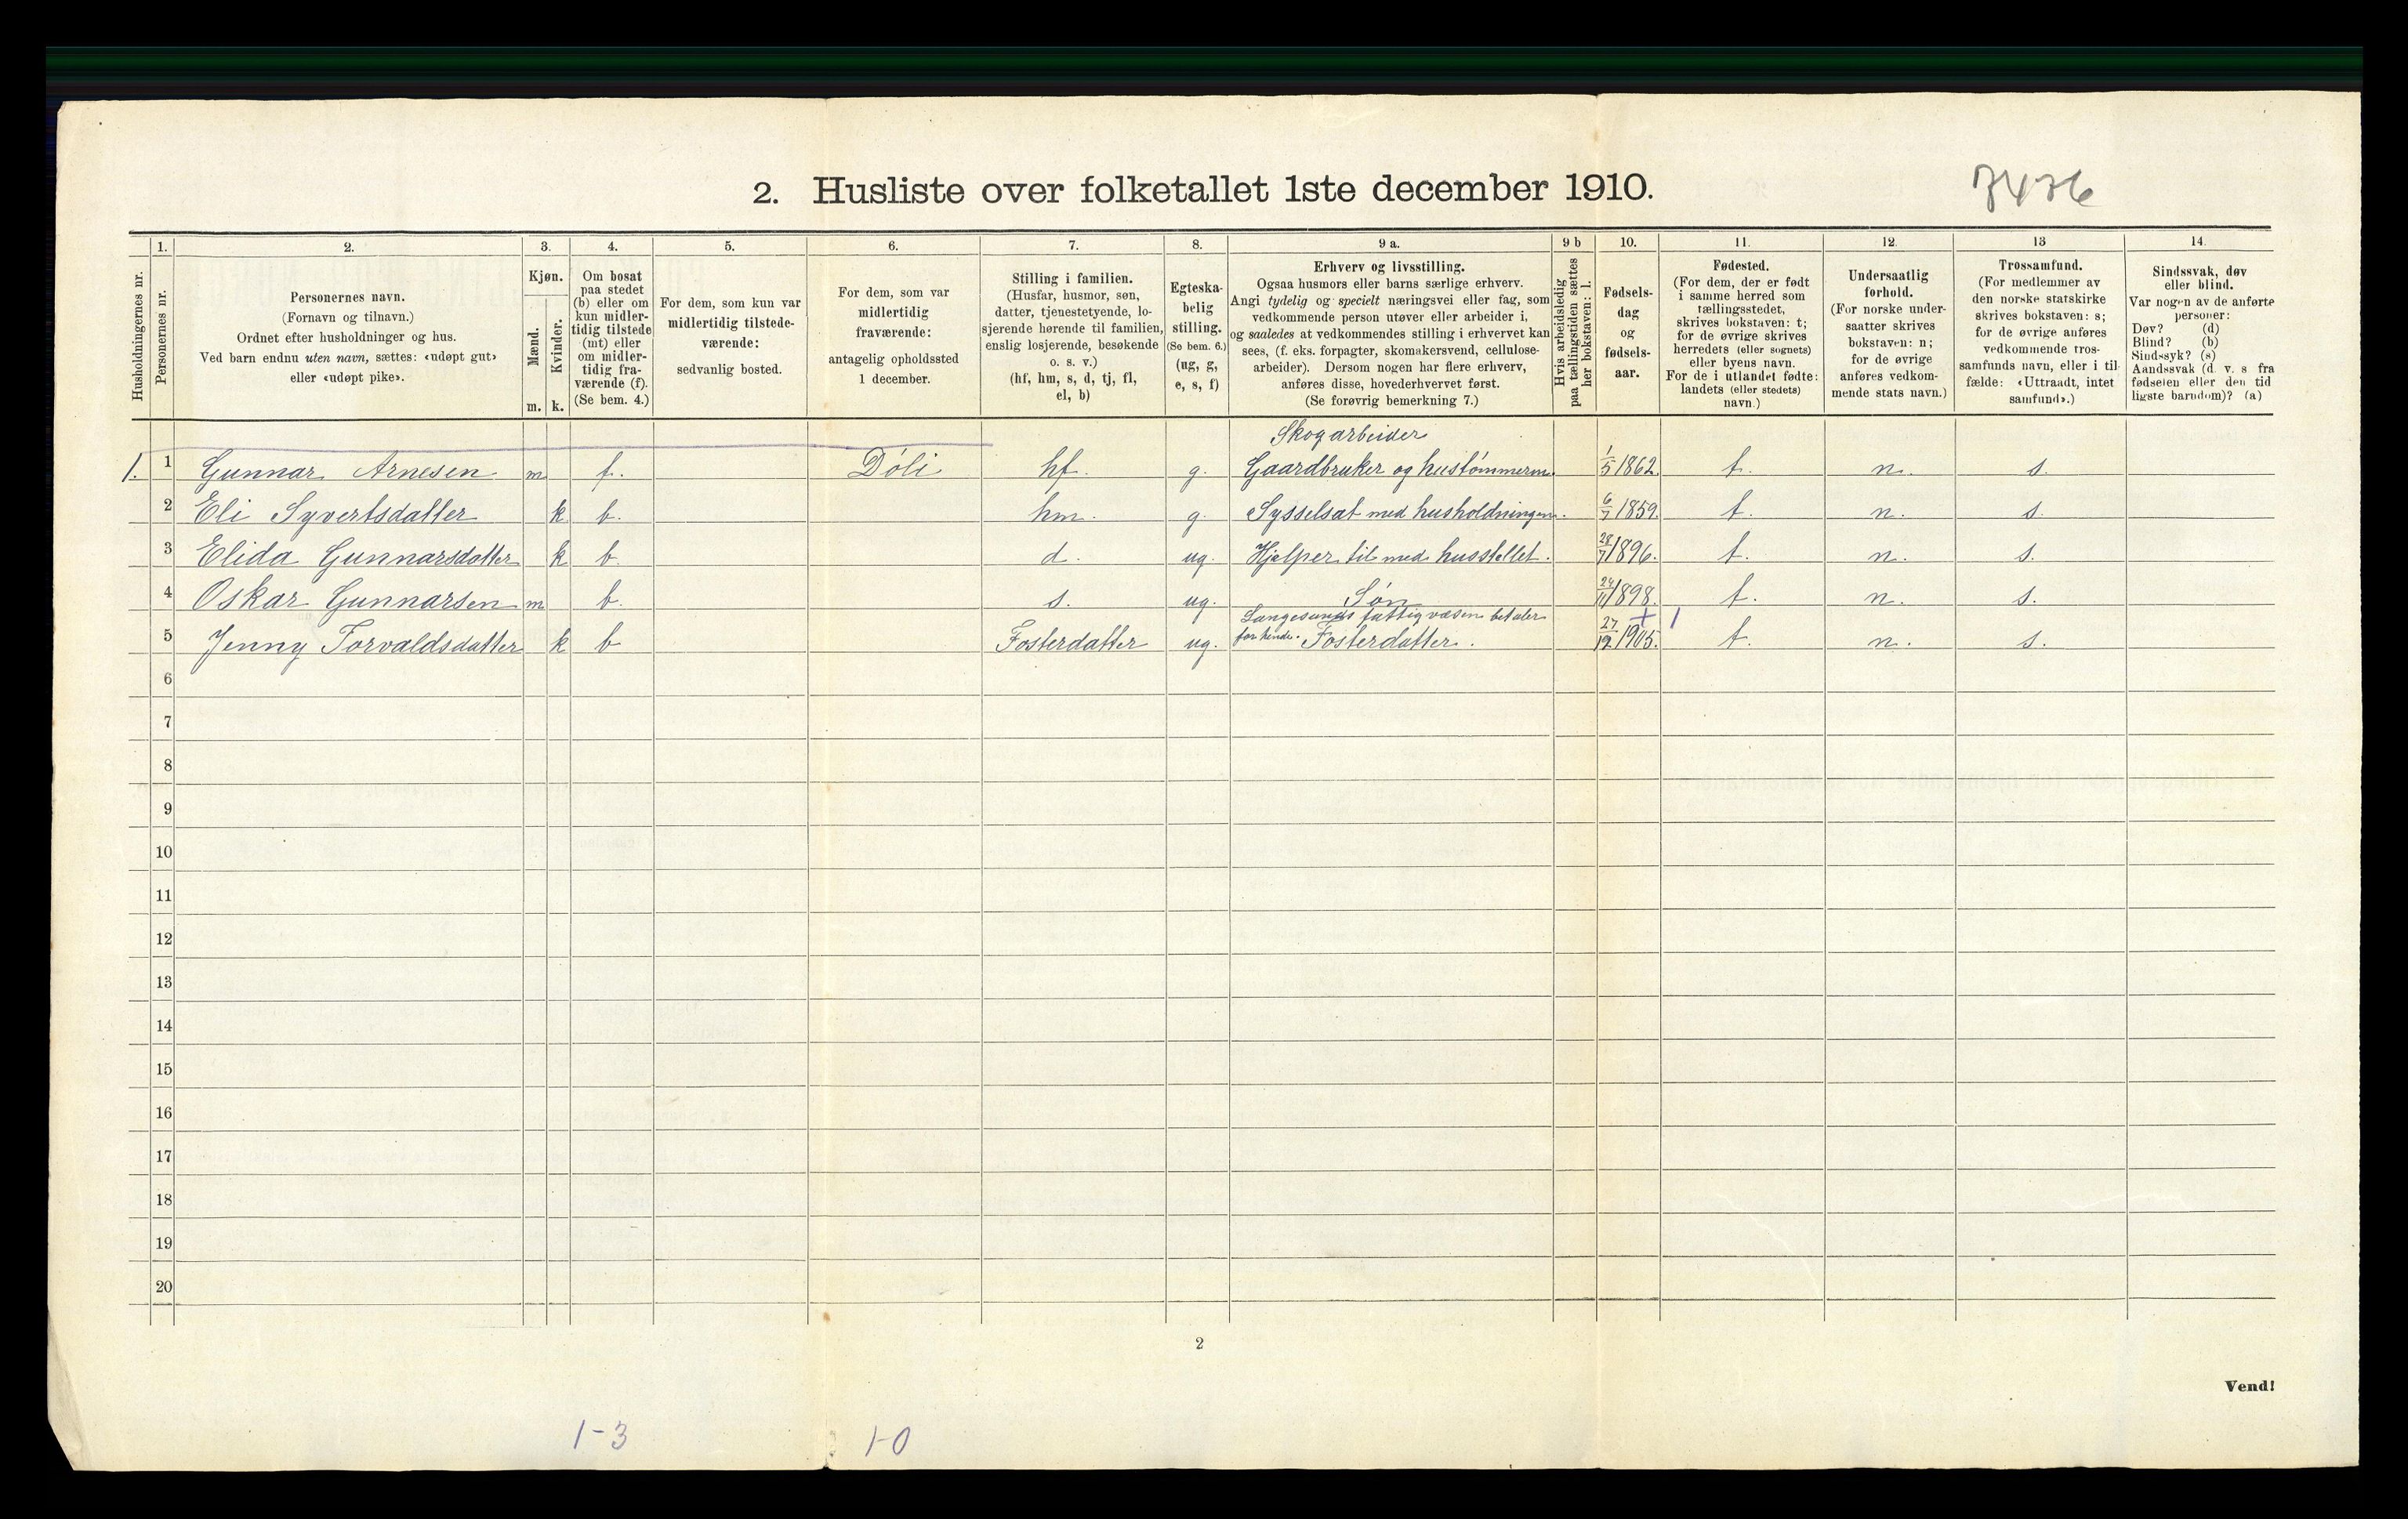 2. Husliste over folketallet 1ste december 1910.
7476
Husholdningernes nr.
1.
Personernes nr.
2.
Personernes navn.
(Fornavn og tilnavn.)
Ordnet efter husholdninger og hus.
Ved barn endnu uten navn, sættes: «udøpt gut»
eller «udøpt pike».
3.
Kjøn.
Mænd.
Kvinder.
m. k.
4.
Om bosat
paa stedet
(b) eller om
kun midler-
tidig tilstede
(mt) eller
om midler-
tidig fra-
værende (f).
(Se bem. 4.)
5.
For dem, som kun var
midlertidig tilstede-
værende:
sedvanlig bosted.
6.
For dem, som var
midlertidig
fraværende:
antagelig opholdssted
1 december.
7.
Stilling i familien.
(Husfar, husmor, søn,
datter, tjenestetyende, lo-
sjerende hørende til familien,
enslig losjerende, besøkende
o. s. v.)
(hf, hm, s, d, tj, fl,
el, b)
8.
Egteska-
belig
stilling.
(Se bem. 6.)
(ug, g,
e, s, f)
9 a.
Erhverv og livsstilling.
Ogsaa husmors eller barns særlige erhverv.
Angi tydelig og specielt næringsvei eller fag, som
vedkommende person utøver eller arbeider i,
og saaledes at vedkommendes stilling i erhvervet kan
sees, (f. eks. forpagter, skomakersvend, cellulose-
arbeider). Dersom nogen har flere erhverv,
anføres disse, hovederhvervet først.
(Se forøvrig bemerkning 7.)
9 b
Hvis arbeidsledig
paa tællingstiden sættes
her bokstaven: l.
10.
Fødsels-
dag
og
fødsels-
aar.
11.
Fødested.
(For dem, der er født
i samme herred som
tællingsstedet,
skrives bokstaven: t;
for de øvrige skrives
herredets (eller sognets)
eller byens navn.
For de i utlandet fødte:
landets (eller stedets)
navn.)
12.
Undersaatlig
forhold.
(For norske under-
saatter skrives
bokstaven: n;
for de øvrige
anføres vedkom-
mende stats navn.)
13
Trossamfund.
(For medlemmer av
den norske statskirke
skrives bokstaven: s;
for de øvrige anføres
vedkommende tros-
samfunds navn, eller i til-
fælde: «Uttraadt, intet
samfund».)
14.
Sindssvak, døv
eller blind.
Var nogen av de anførte
personer:
Døv? (d)
Blind? (b)
Sindssyk? (s)
Aandssvak (d. v. s. fra
fødselen eller den tid-
ligste barndom)? (a)
Skogarbeider
1. 1 Gunnar Arnesen m f. Döli hf. g. Gaardbruker og hustömmerm. 1/5 1862. t. n. s.
2 Eli Syvertsdatter k b. hm. g. Sysselsat med husholdningen. 6/7 1859. t. n. s.
3 Elida Gunnarsdatter k b. d. ug. Hjælper til med husstellet. 28/7 1896. t. n. s.
4 Oskar Gunnarsen m b. s. ug. Sön 24/11 1898. t. n. s.
Langesunds fattigvæsen betaler
5 Jenny Torvaldsdatter k b Fosterdatter ug. for hende. Fosterdatter. 27/12 1905. t. n. s.
6
7
8
9
10
11
12
13
14
15
16
17
18
19
20
2
Vend!
1-3 1-0